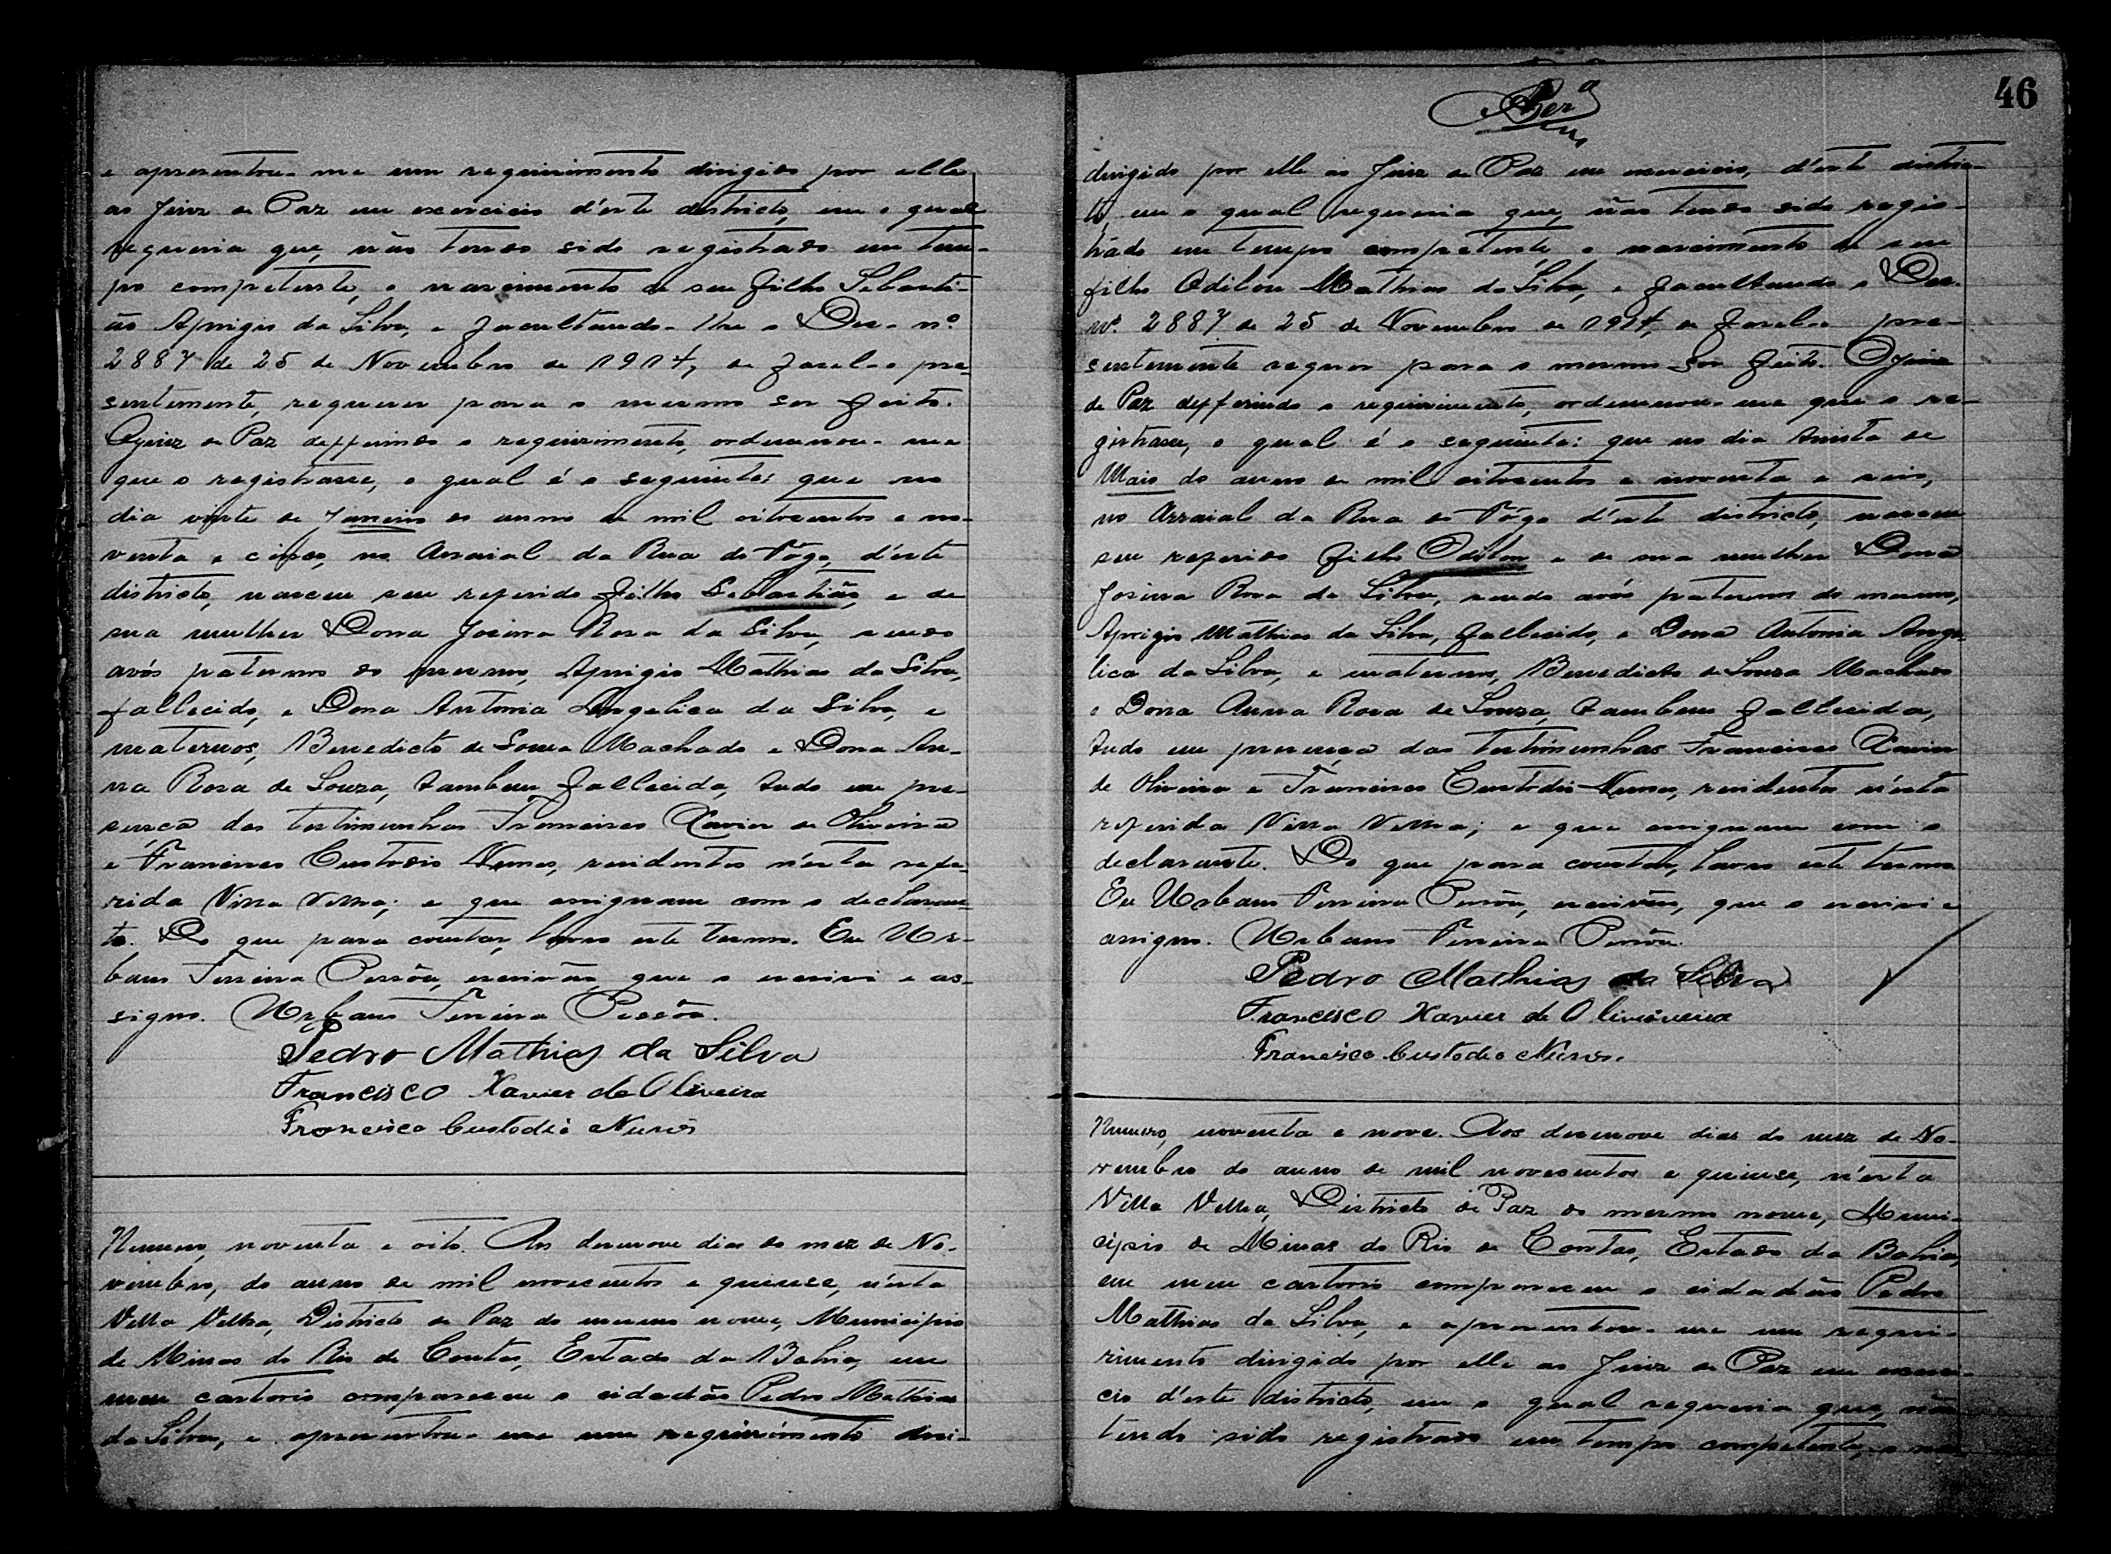 e apresentou-me um requirimento dirigido por elle
ao Juiz de Paz em exercicio d'este districto, em o qual
requeria que, não tendo sido registrado em tem-
po competente, o nascimento de seu filho Sebasti-
ão Aprigio da Silva, e facultando-lhe o Dec. nº
2887 de 25 de Novembro de 1914, de fasel-o pre-
sentemente, requerer para o mesmo ser feito.
O Juiz de Paz defferindo o requirimento, ordenou-me
que o registrasse, o qual é o seguinte: que no
dia vinte de Janeiro do anno de mil oitocentos e no-
venta e cinco, no Arraial da Rua do Fôgo, d'este
districto, nasceu seu referido filho Sebastião, e de
sua mulher Dona Josina Rosa da Silva, sendo
avós paternos do mesmo, Aprigio Mathias da Silva,
fallecido, e Dona Antonia Angelica da Silva, e
maternos, Benedicto de Souza Machado e Dona An-
na Rosa de Souza, tambem fallecida, tudo em pre-
sença das testimunhas Francisco Xavier de Oliveira
e Francisco Custodio Nunes, residentes n'esta refe-
rida Villa Velha; e que assignam com o declaran-
te. Do que para constar, lavro este termo. Eu Ur-
bano Ferreira Pessôa, escrivão, que o escrivi e as-
signo. Urbano Ferreira Pessôa.
Pedro Mathias da Silva
Francisco Xavier de Oliveira
Francisco Custodio Nunes
Numero, noventa e oito. Aos desenove dias do mez de No-
vembro, do anno de mil novecentos e quinse, n'esta
Villa Velha, Districto de Paz do mesmo nome, Municipio
de Minas do Rio de Contas, Estado da Bahia, em
meu cartorio compareceu o cidadão Pedro Mathias
da Silva, e apresentou-me um requirimento diri-
46
dirigido por elle ao Juiz de Paz em exercicio, d'este distric-
to em o qual requeria que, não tendo sido regis-
trado em tempo competente, o nascimento de seu
filho Odilon Mathias da Silva, e facultando o Dec.
nº 2887 de 25 de Novembro de 1914, de fasel-o pre-
sentemente requer para o mesmo ser feito. O Juiz
de Paz defferindo o requirimento, ordenou-me que o re-
gistrasse, o qual é o seguinte: que no dia trinta de
Maio do anno de mil oitocentos e noventa e seis,
no Arraial da Rua do Fôgo d'este districto, nasceu
seu referido filho Odilon e de sua mulher Dona
Josina Rosa da Silva, sendo avós paternos do mesmo,
Aprigio Mathias da Silva, fallecido, e Dona Antonia Ange-
lica da Silva, e maternos, Benedicto de Souza Machado
e Dona Anna Rosa de Souza, tambem fallecida,
tudo em presença das testimunhas Francisco Xavier
de Oliveira e Francisco Custodio Nunes, residentes n'esta
referida Villa Velha; e que assignam com o
declarante. Do que para constar, lavro este termo
Eu Urbano Ferreira Pessôa, escrivão, que o escrivi e
assigno. Urbano Ferreira Pessôa.
Pedro Mathias da Silva
Francisco Xavier de Oliviveira
Francisco Custodio Nunes.
Numero, noventa e nove. Aos desenove dias do mez de No-
vembro do anno de mil novecentos e quinse, n'esta
Villa Velha, Districto de Paz do mesmo nome, Muni-
cipio de Minas do Rio de Contas, Estado da Bahia,
em meu cartorio compareceu o cidadão Pedro
Mathias da Silva, e apresentou-me um requi-
rimento dirigido por elle ao Juiz de Paz em exerci-
cio d'este districto, em o qual requeria que, não
tendo sido registrado em tempo competente, o nas